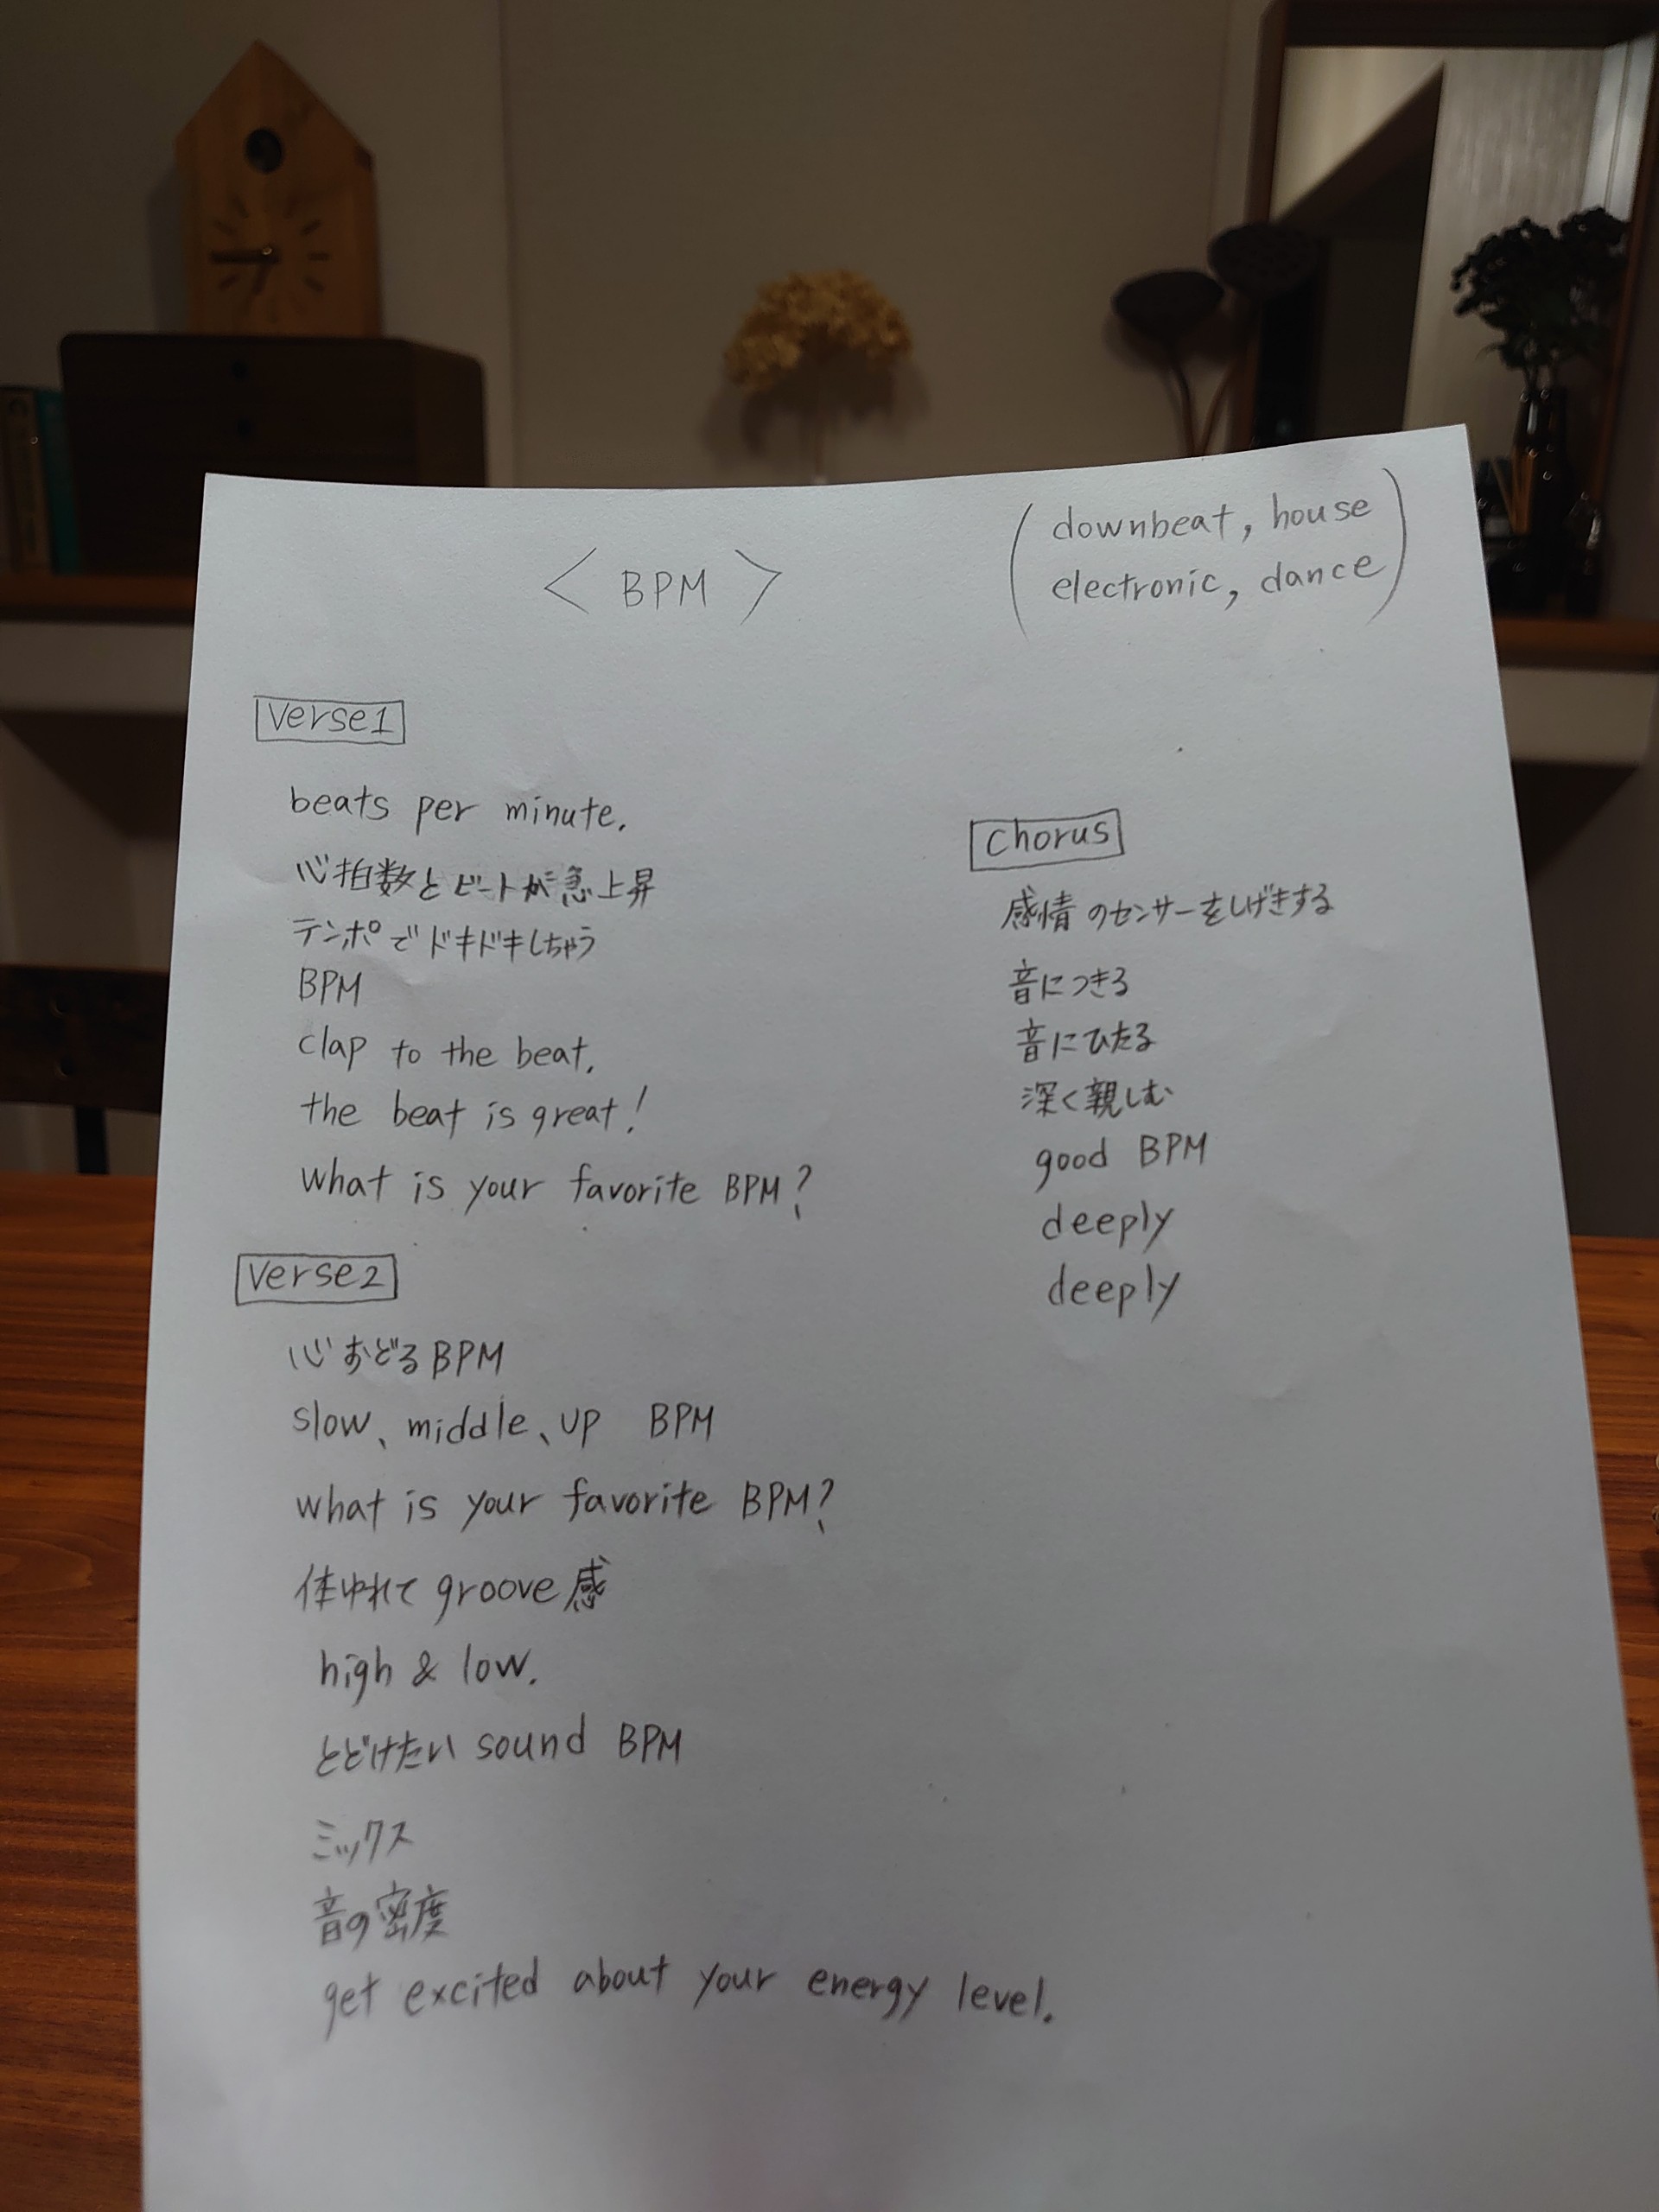 < BPM >
( downbeat, house
electronic, dance )
Verse1
beats per minute.
心拍数とビートが急上昇
テンポでドキドキしちゃう
BPM
clap to the beat.
the beat is great!
What is your favorite BPM?
Verse2
心おどるBPM
slow、middle、up BPM
what is your favorite BPM?
体ゆれて groove感
high & low.
とどけたい sound BPM
ミックス
音の密度
get excited about your energy level.
Chorus
感情のセンサーをしげきする
音につきる
音にひたる
深く親しむ
good BPM
deeply
deeply